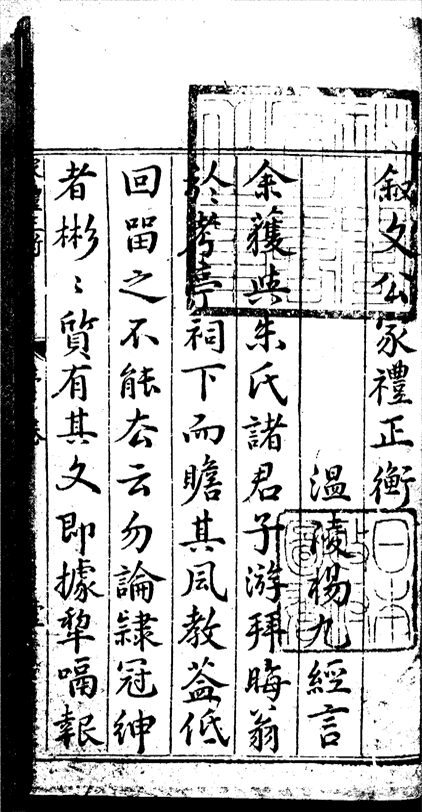 叙文公家禮正衡
溫陵楊九經言
余獲與朱氏諸君子游拜晦翁
於考亭祠下而瞻其風教蓋低
回畱之不能去云勿論隷冠紳
者彬〻質有其文即據犂嗝報